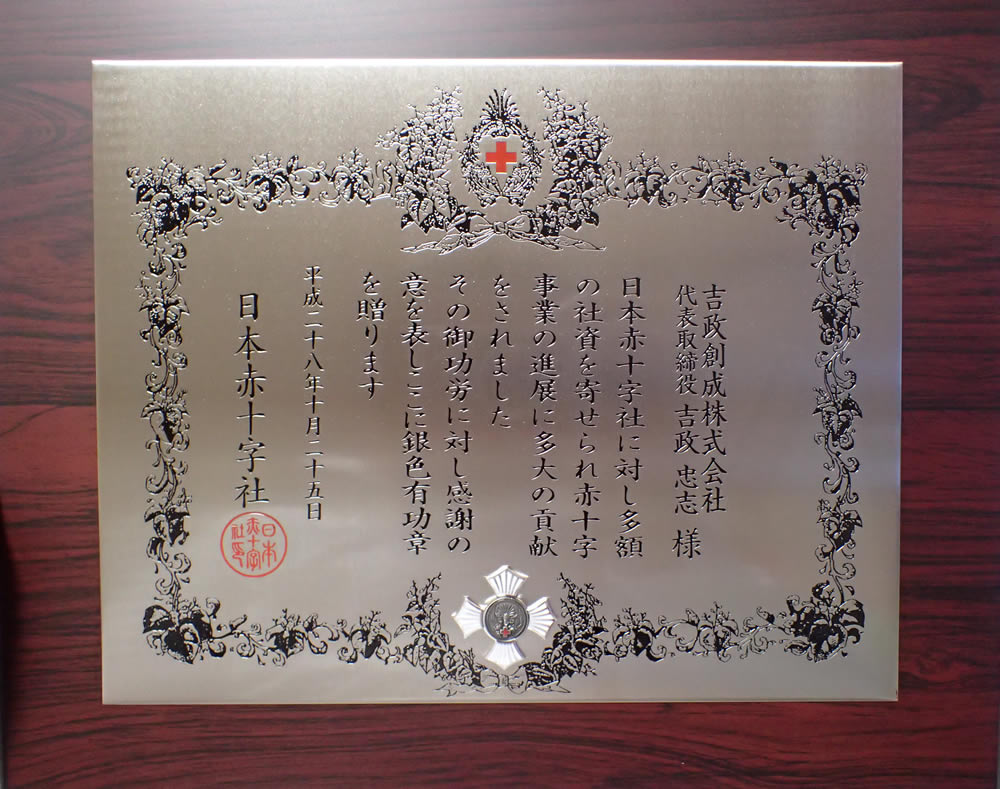 吉政創成株式会社
代表取締役 吉政 忠志 様
日本赤十字社に対し多額
の社資を寄せられ赤十字
事業の進展に多大の貢献
をされました
その御功労に対し感謝の
意を表しここに銀色有功章
を贈ります
平成二十八年十月二十五日
日本赤十字社
日本
赤十字
社印